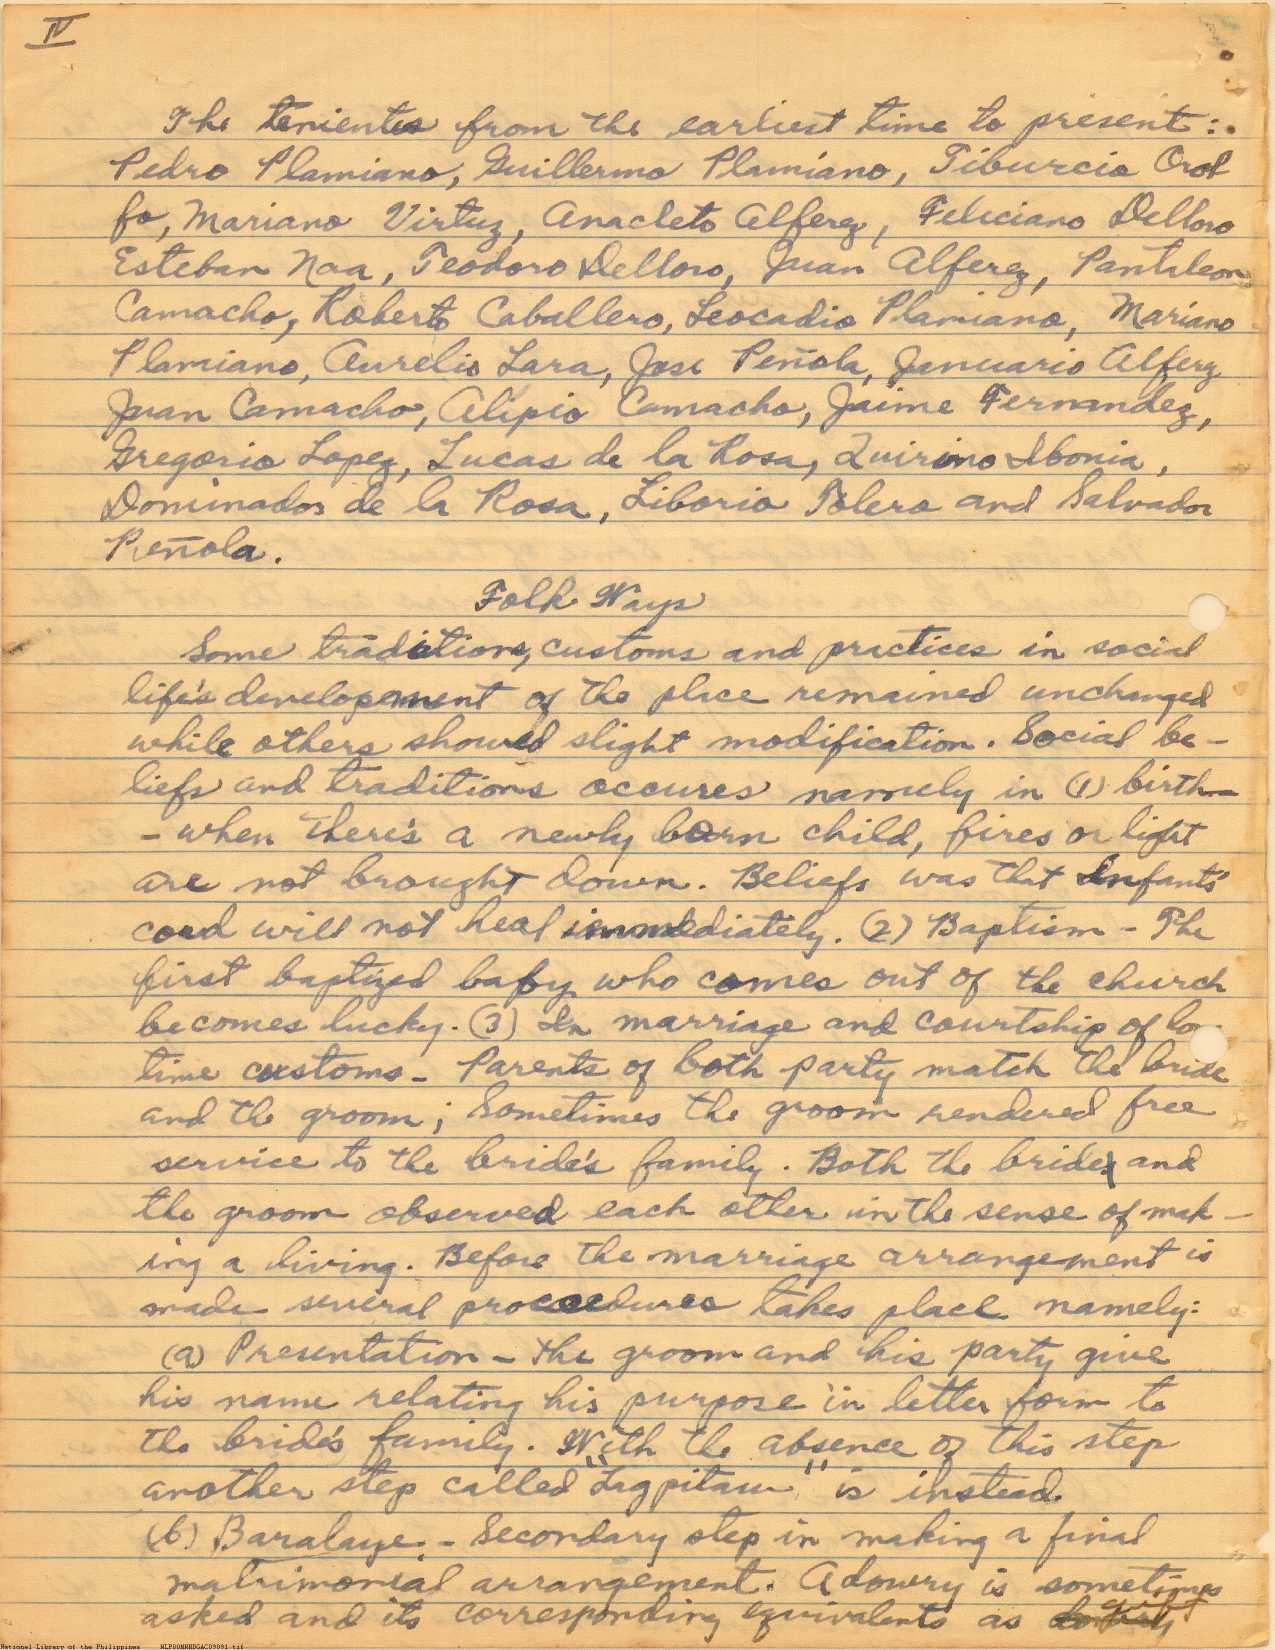 IV
The tenientes from the earliest time to present:
Pedro Plamiano, Guillermo Plamiano, Tiburcio Orol
fo, Mariano Virtuz, Anacleto Alferez, Feliciano Delloro
Esteban Naa, Teodoro Delloro, Juan Alferez, Pantileon
Camacho, Roberto Caballero, Leocadio Plamiano, Mariano
Plamiano, Aurelio Lara, Jose Peñola, Januario Alferz
Juan Camacho, Alipio Camacho, Jaime Fernandez,
Gregorio Lopez, Lucas de la Rosa, Quirino Ibonia,
Dominador de la Rosa, Liborio Tolero and Salvador
Peñola.
Folk Ways
Some traditions, customs and practices in social
life's developement of the place remained unchanged
while others showed slight modification. Social be-
liefs and traditions occures namely in (1) birth-
- when there's a newly born child, fires or light
are not brought down. Beliefs was that Infants'
cord will not heal immediately. (2) Baptism - The
first baptized baby who comes out of the church
becomes lucky. (3) In marriage and courtship of lo
time customs - Parents of both party match the bride
and the groom; Sometimes the groom rendered free
service to the bride's family. Both the bride and
the groom observed each other in the sense of mak-
ing a living. Before the marriage arrangement is
made several proceedures takes place namely:
(a) Presentation - the groom and his party give
his name relating his purpose in letter form to
the bride's family. With the absence of this step
another step called "Lagpitaw" is instead.
(b) Baralaye. - Secondary step in making a final
matrimonial arrangement. A dowry is sometimes
asked and its corresponding equivalents as
National Library of the Philippines